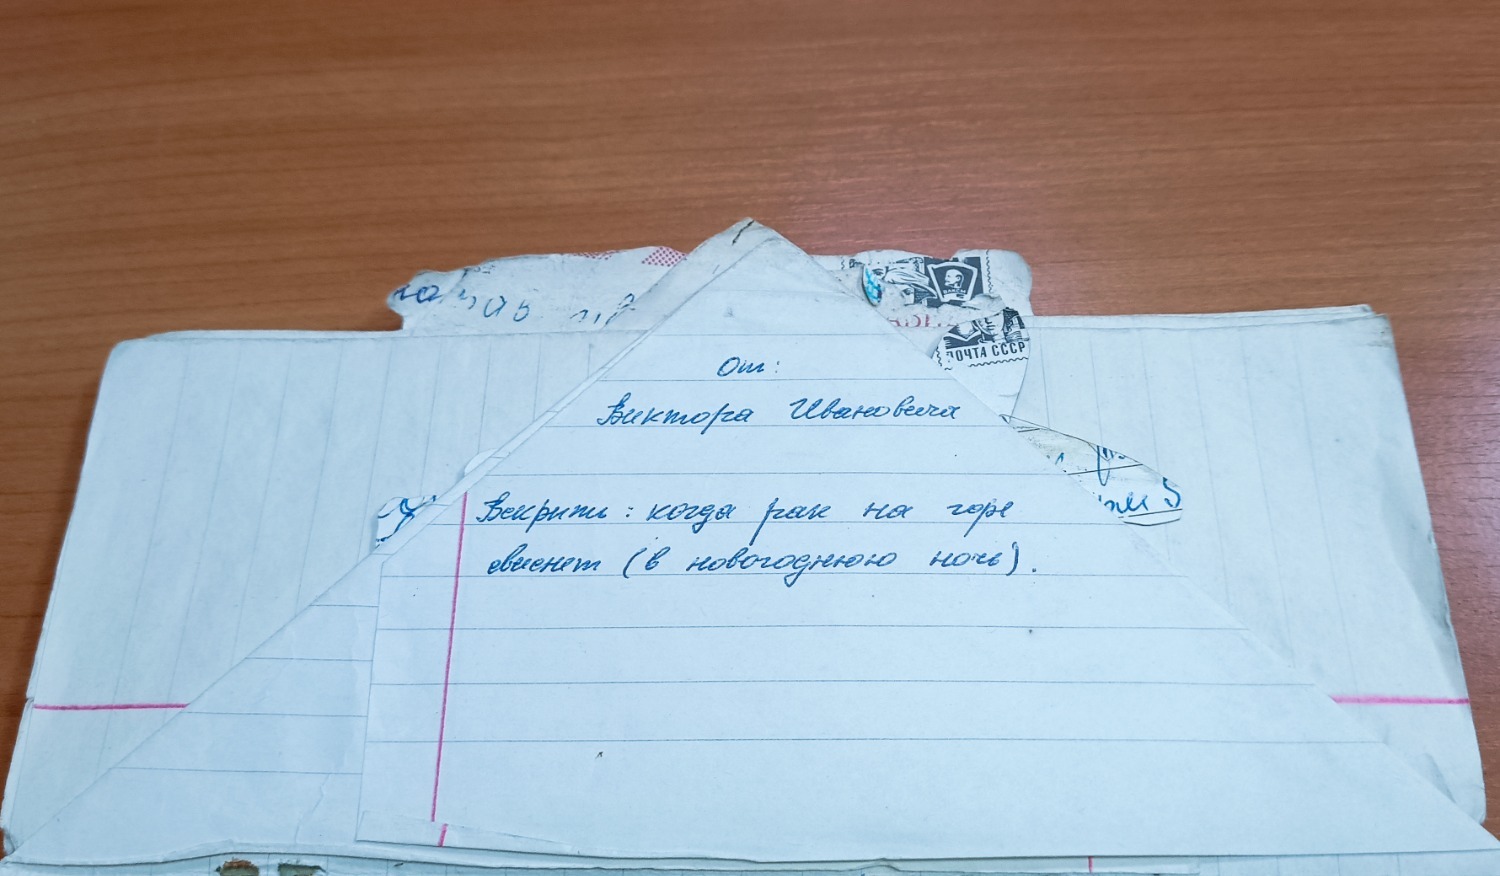 ПОЧТА СССР
От:
Виктора Ивановича
Вскрыть: когда рак на горе
свиснет (в новогоднюю ночь).